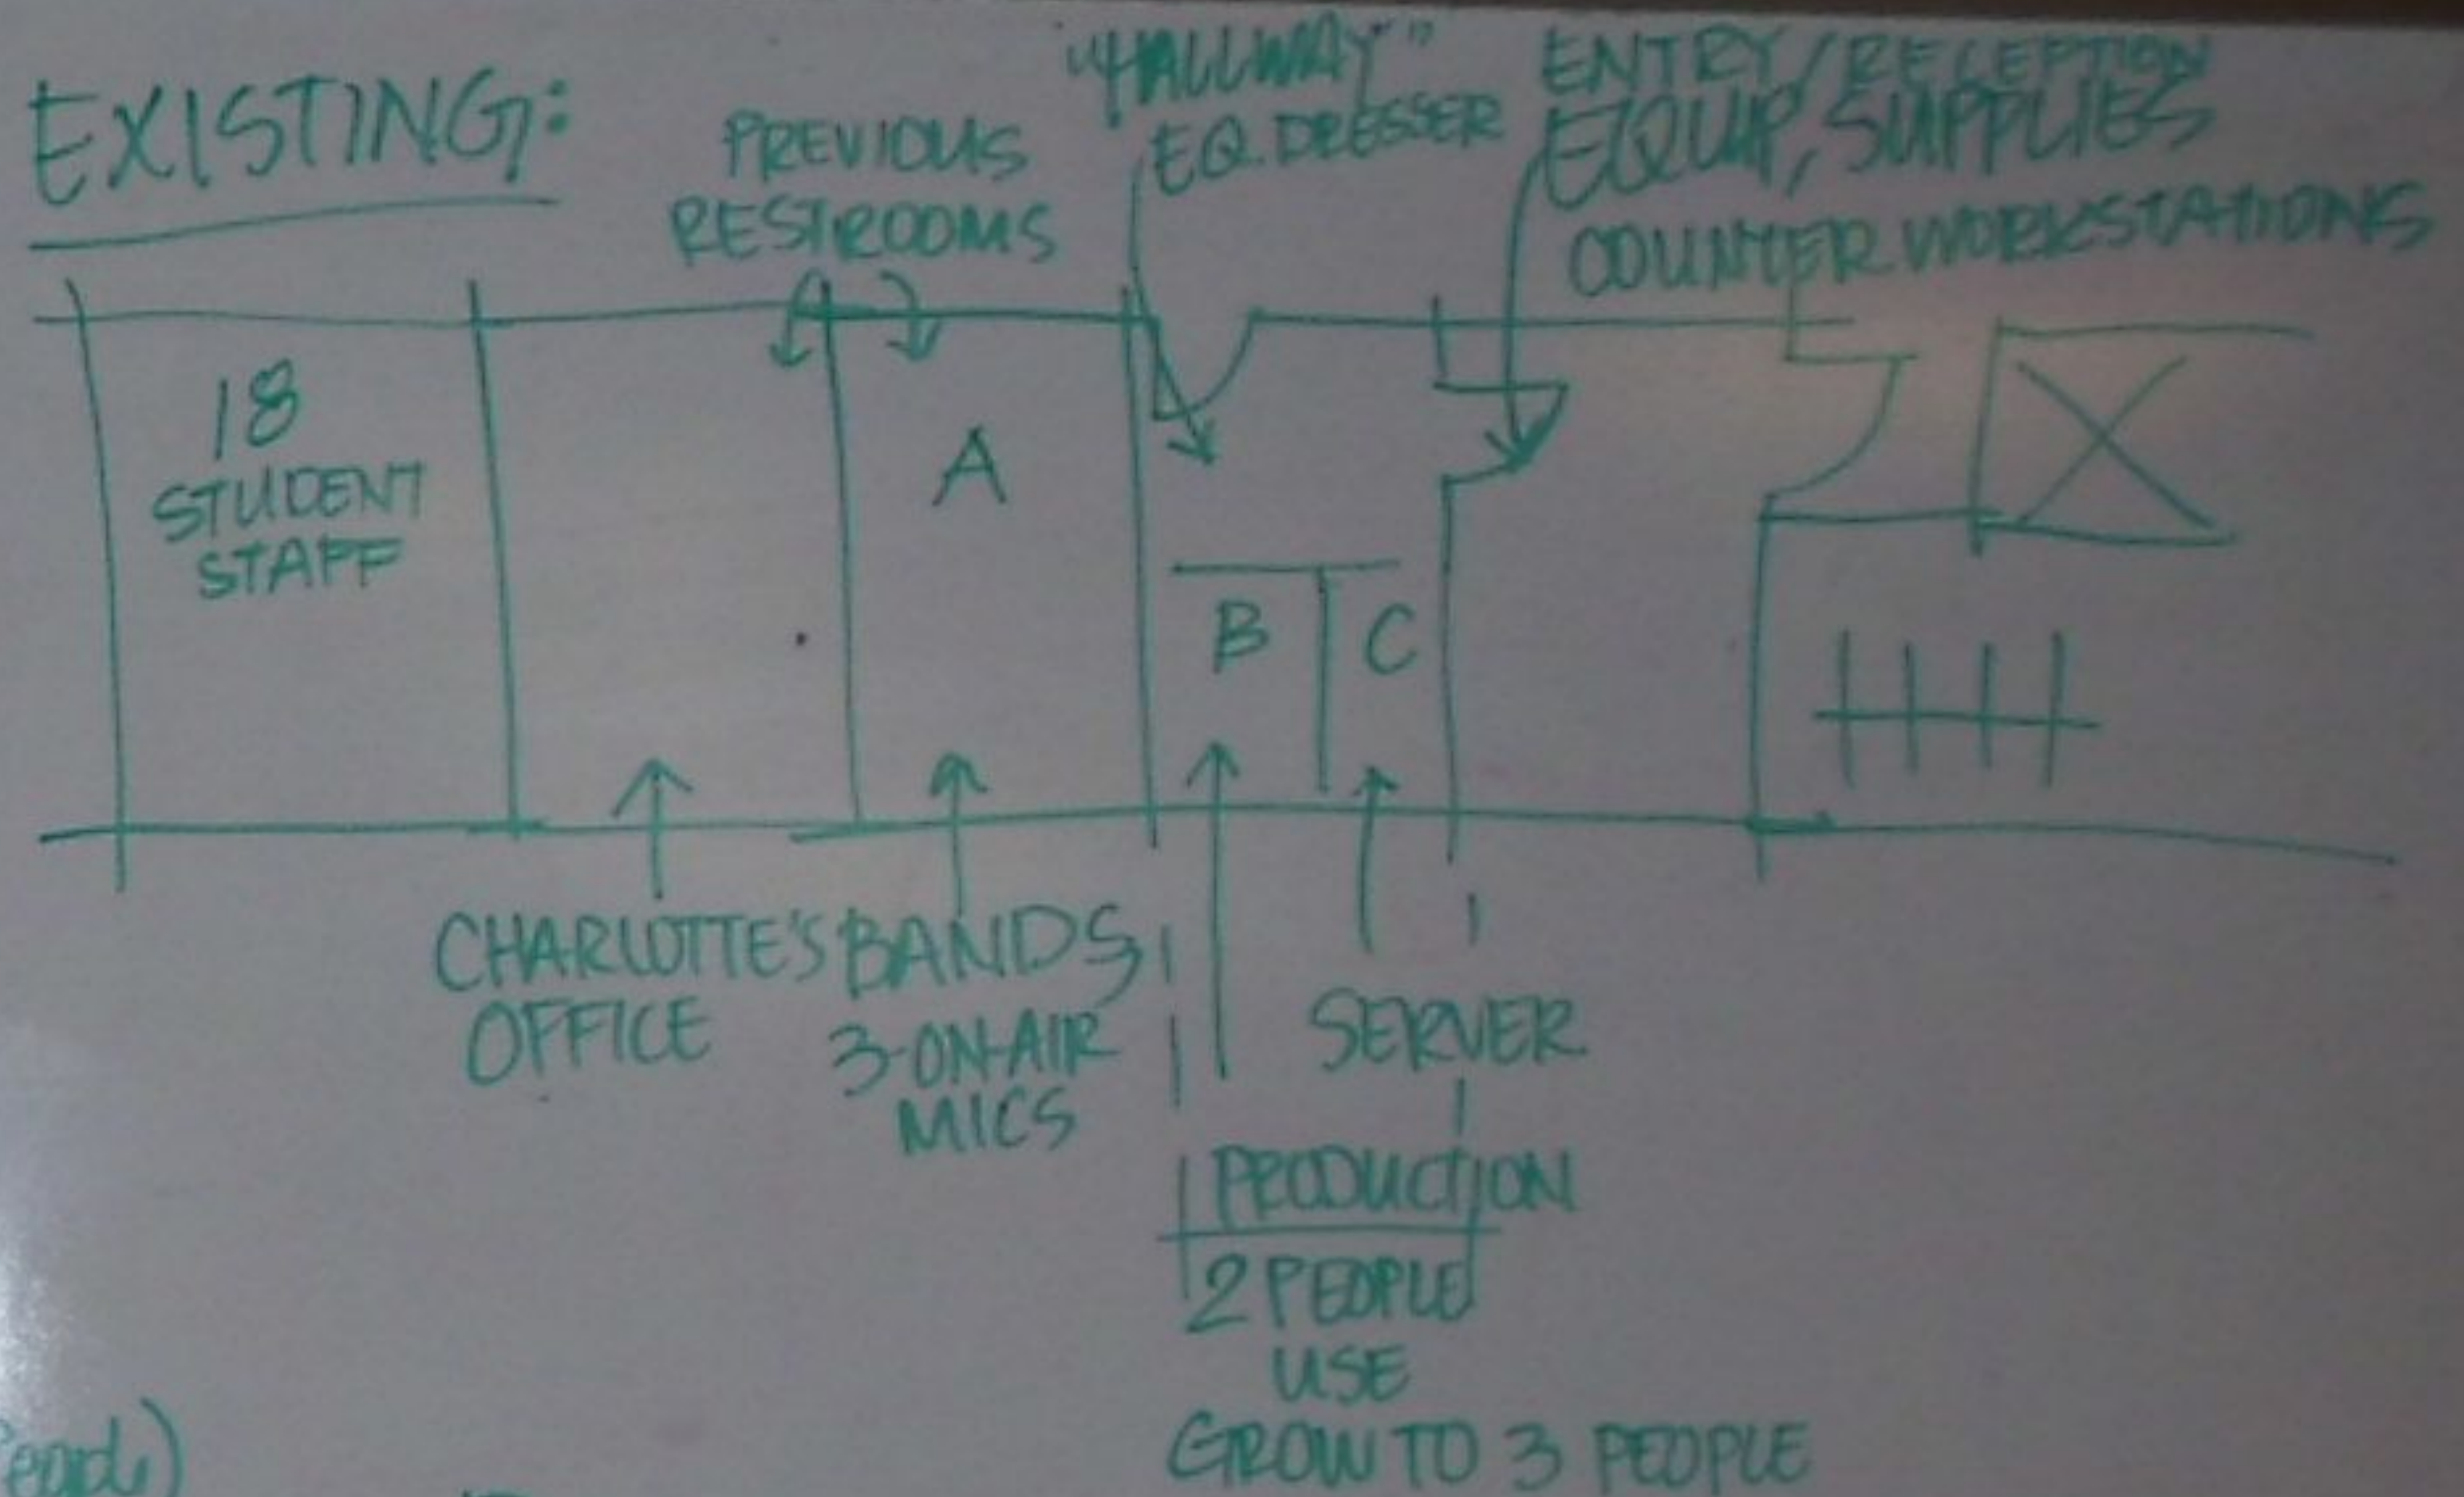 EXISTING:
"HALLWAY"
EQ. DRESSER
ENTRY/RECEPTION
EQUIP, SUPPLIES
COUNTER WORKSTATIONS
PREVIOUS
RESTROOMS
18
STUDENT
STAFF
A
B
C
CHARLOTTE'S
OFFICE
BANDS,
3-ON-AIR
MICS
SERVER
PRODUCTION
2 PEOPLE
USE
GROW TO 3 PEOPLE